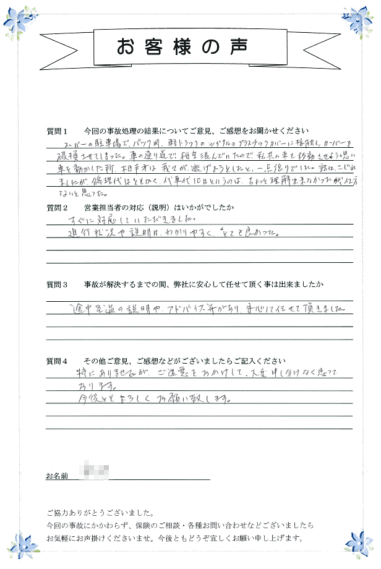 お客様の声
質問１　今回の事故処理の結果についてご意見、ご感想をお聞かせください
スーパーの駐車場で、バック時、軽トラックの
破損させてしまった。車の通り道で、
車を動かした所、相手方は我々が逃げようとしたと、一点張りでした。
ましたが修理代はともかく代車代10日というのは、ちょっと理解出来なかったが仕方
ないと思った。
質問２　営業担当者の対応（説明）はいかがでしたか
すぐに対応していただきました。
進行状況や説明は、わかりやすく、とても良かった。
質問３　事故が解決するまでの間、弊社に安心して任せて頂く事は出来ましたか
途中定温の説明や、アドバイス等があり、安心して任せて頂きました。
質問４　その他ご意見、ご感想などがございましたらご記入ください
特にありませんが、ご迷惑をおかけして、大変申し分けなく思って
おります。
今後ともよろしくお願い致します。
お名前
ご協力ありがとうございました。
今回の事故にかかわらず、保険のご相談・各種お問い合わせなどございましたら
お気軽にお声掛けくださいませ。今後ともどうぞ宜しくお願い申し上げます。